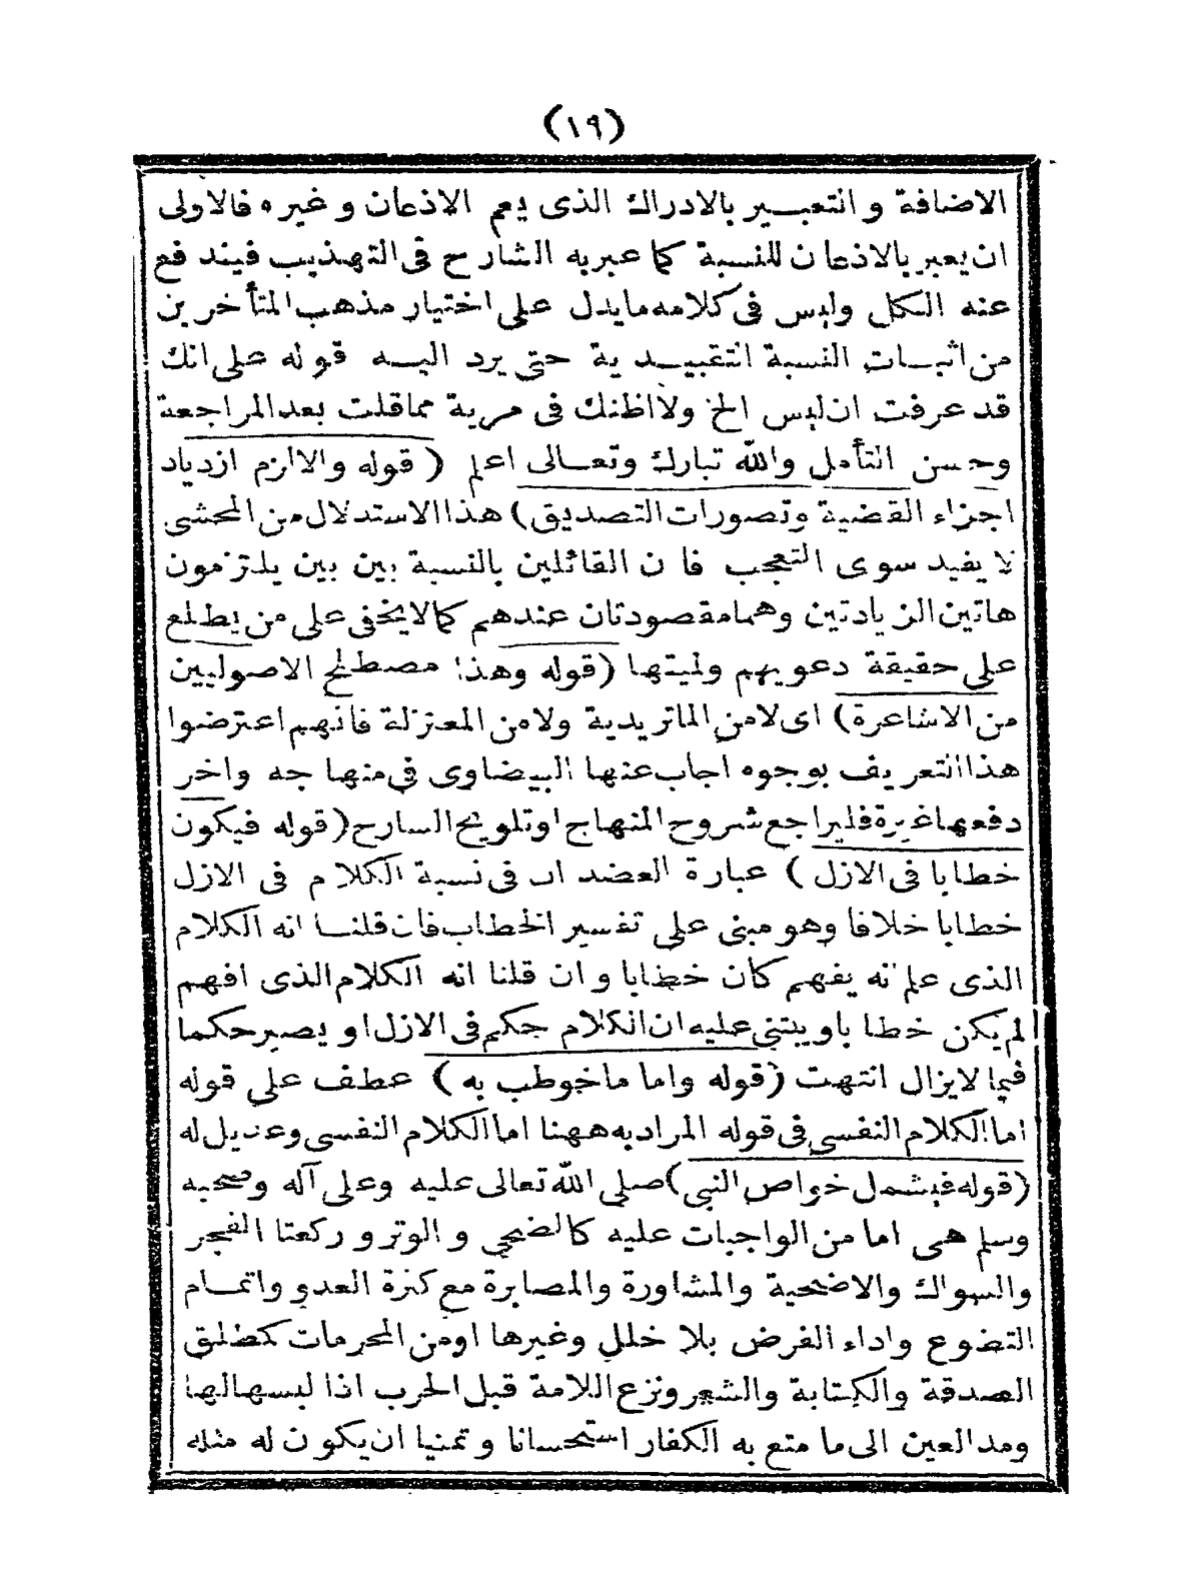 (١٩)
الاضافة والتعبير بالادراك الذى يعم الاذعان وغيره فالاولى
ان يعبر بالاذعان للنسبة كما عبر به الشارح فى التهذيب فيندفع
عنه الكل وليس فى كلامه ما يدل على اختيار مذهب المتأخرين
من اثبات النسبة التقييدية حتى يرد اليه قوله على انك
قد عرفت ان ليس الخ ولا اظنك فى مرية مما قلت بعد المراجعة
وحسن التأمل والله تبارك وتعالى اعلم (قوله والا لزم ازدياد
اجزاء القضية وتصورات التصديق) هذا الاستدلال من المحشى
لا يفيد سوى التعجب فان القائلين بالنسبة بين بين يلتزمون
هاتين الزيادتين وهما مقصودتان عندهم كما لا يخفى على من يطلع
على حقيقة دعويهم ولميتها (قوله وهذا مصطلح الاصوليين
من الاشاعرة) اى لا من الماتريدية ولا من المعتزلة فانهم اعترضوا
هذا التعريف بوجوه اجاب عنها البيضاوى فى منهاجه واخر
دفعها غيره فليراجع شروح المنهاج او تلويح السارح (قوله فيكون
خطابا فى الازل) عبارة العضد ان فى نسبة الكلام فى الازل
خطابا خلافا وهو مبنى على تفسير الخطاب فان قلنا انه الكلام
الذى علم انه يفهم كان خطابا وان قلنا انه الكلام الذى افهم
لم يكن خطابا ويبتنى عليه ان الكلام حكم فى الازل او يصير حكما
فيما لا يزال انتهت (قوله واما ما خوطب به) عطف على قوله
اما الكلام النفسى فى قوله المراد به ههنا اما الكلام النفسى وعديل له
(قوله فيشمل خواص النبى) صلى الله تعالى عليه وعلى آله وصحبه
وسلم هى اما من الواجبات عليه كالضحى والوتر و ركعتا الفجر
والسواك والاضحية والمشاورة والمصابرة مع كثرة العدو واتمام
التطوع واداء الفرض بلا خلل وغيرها او من المحرمات كمطلق
الصدقة والكتابة والشعر ونزع اللامة قبل الحرب اذا لبسها لها
ومد العين الى ما متع به الكفار استحسانا وتمنيا ان يكون له مثله